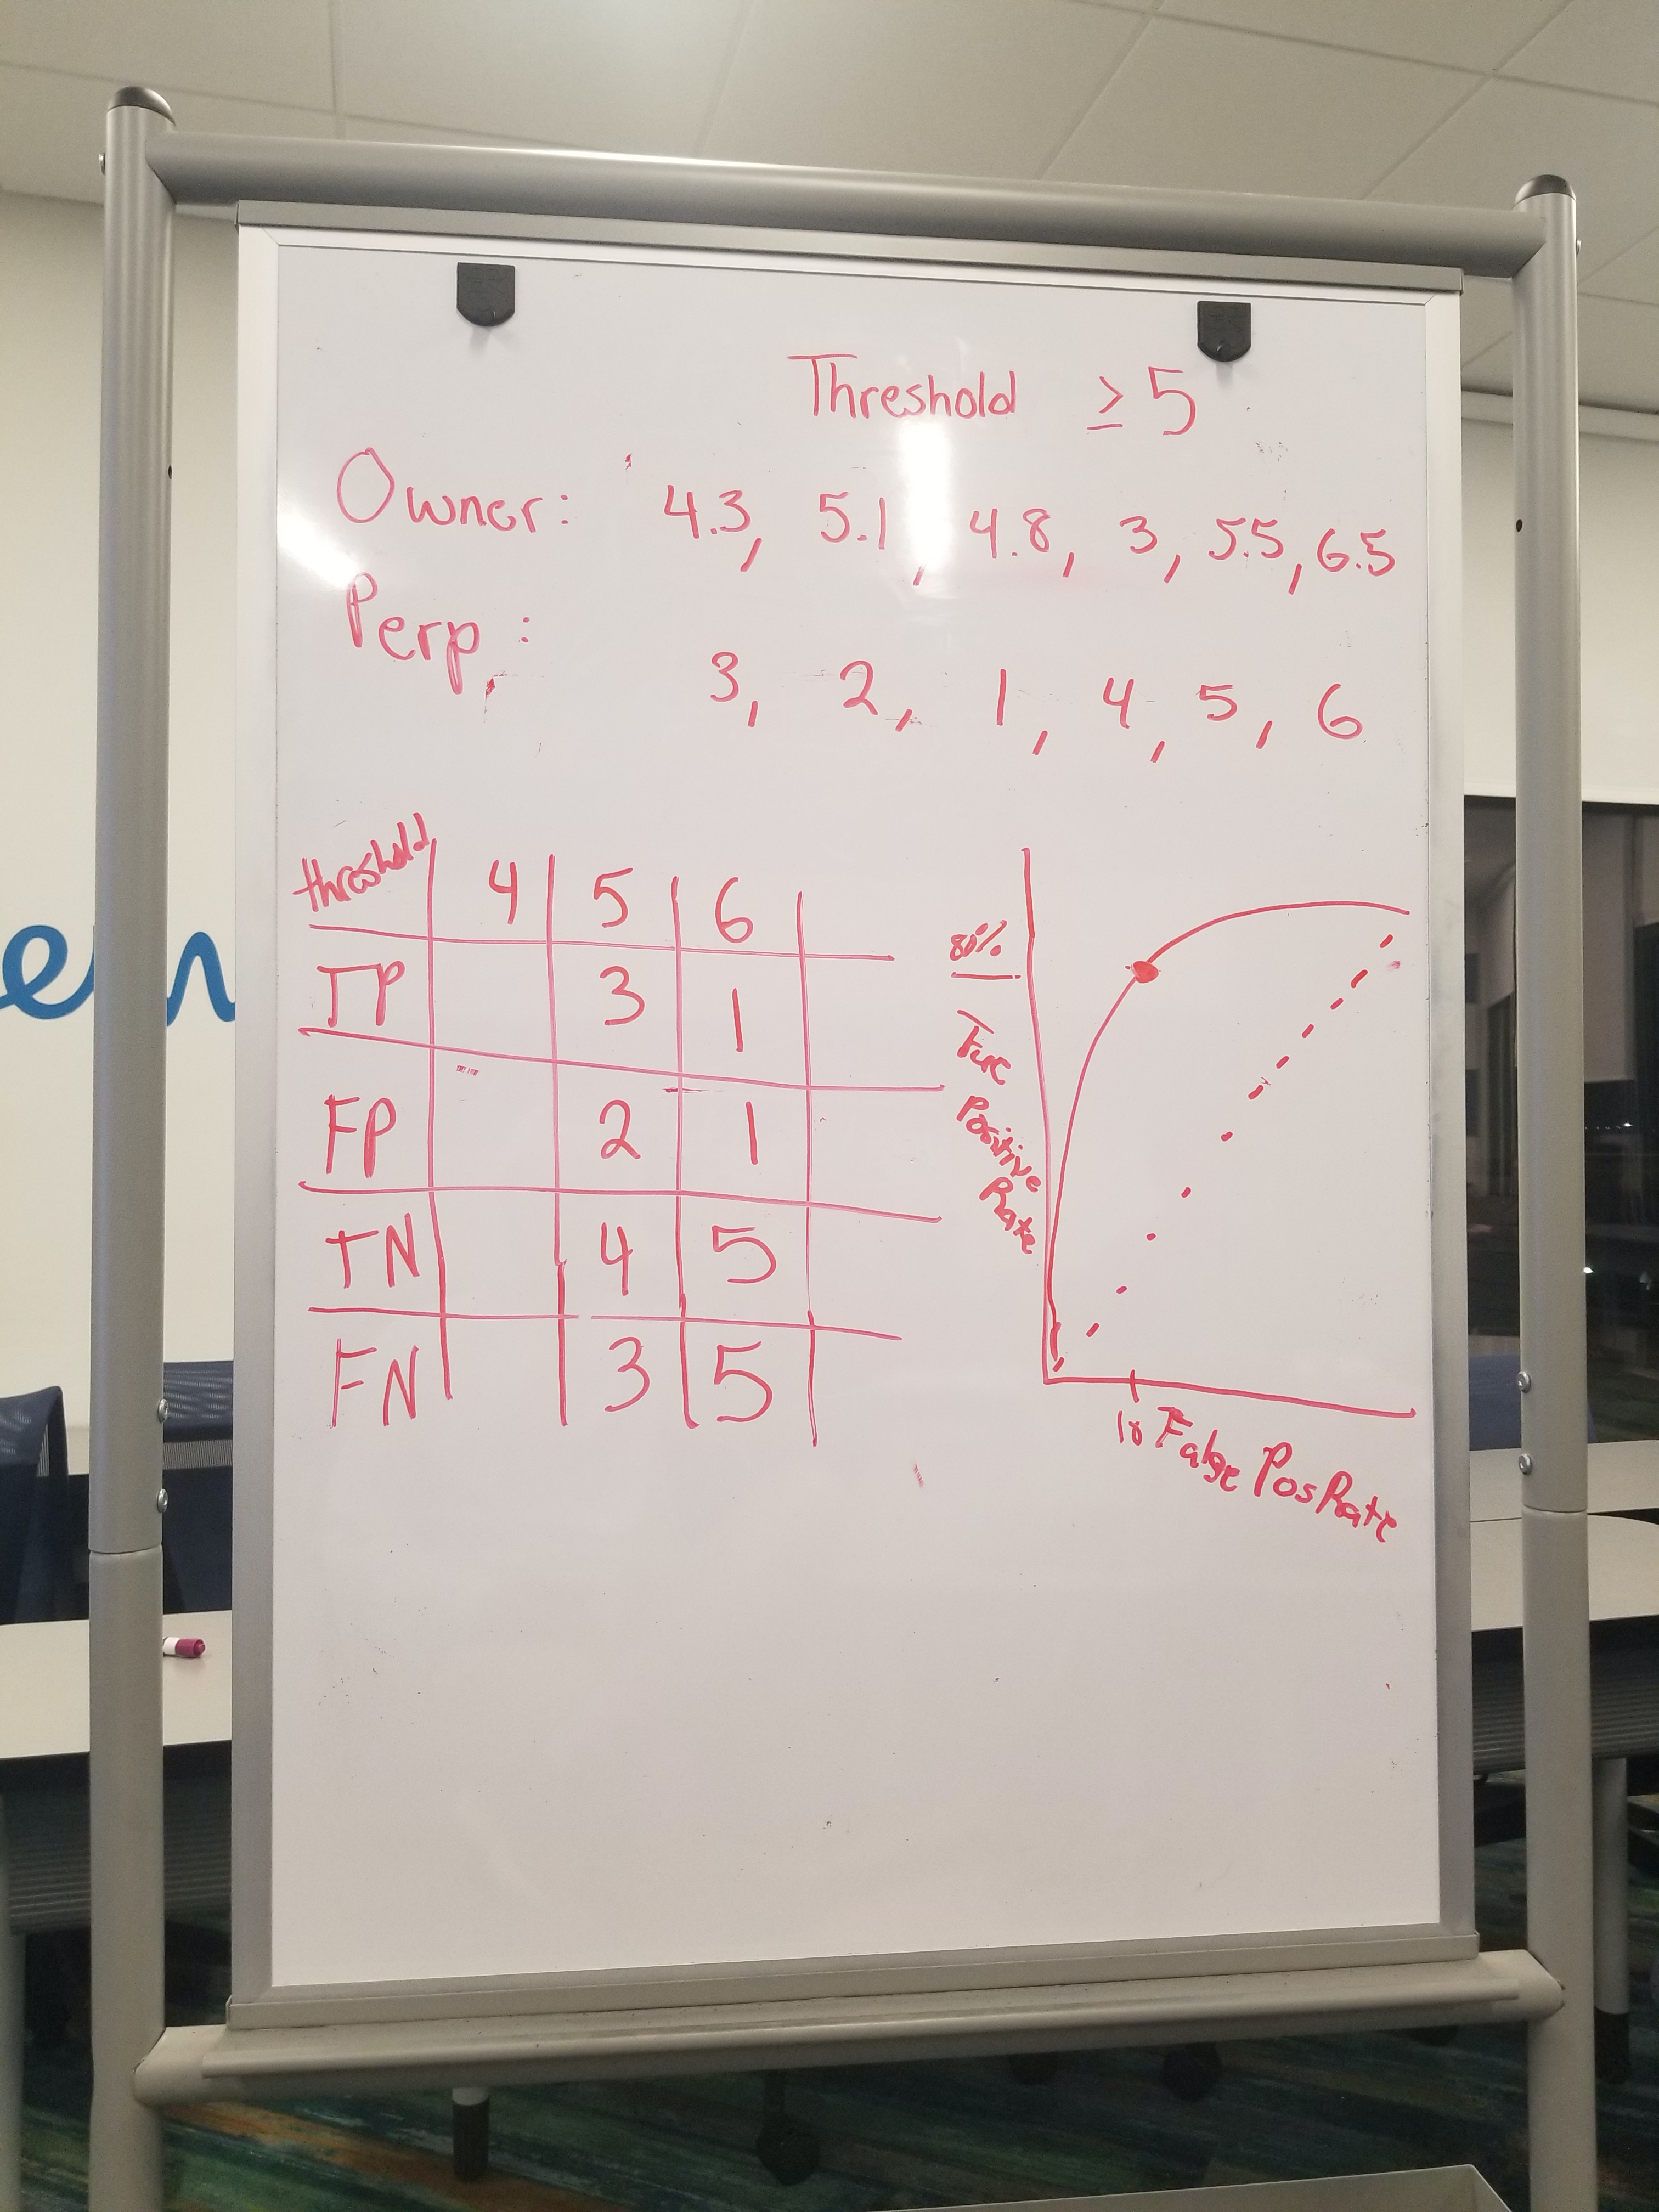 Threshold ≥ 5
Owner: 4.3, 5.1, 4.8, 3, 5.5, 6.5
Perp: 3, 2, 1, 4, 5, 6
threshold 4 5 6
TP 3 1
FP 2 1
TN 4 5
FN 3 5
80%
True
Positive
Rate
False Pos Rate